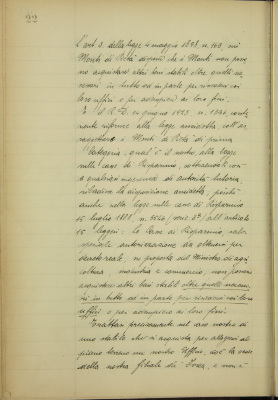 22
L'art. 3. della legge 4 maggio 1898, n. 169, sui
Monti di Pietà dispone che i Monti non pos=
sono acquistare altri beni stabili oltre quelli ne=
cessari in tutto od in parte per risiedervi coi
loro uffici e per adempiere ai loro fini.
E il R. D. 14 giugno 1923 n. 1396, conte=
nente riforme alla legge
i Monti di Pietà di prima
categoria, qual'è il nostro, alla legge
sulle casse di Risparmio, sottraendoli così
a qualsiasi ingerenza di autorità tutoria,
ribadisce la disposizione, poichè
anche nella legge sulle casse di Risparmio
15 luglio 1888 n. 5546 all'articolo
15 leggesi: le Casse di Risparmio salvo
speciale autorizzazione da ottenersi per
decreto reale, su proposta del Ministro di agri
coltura industria e commercio, non possono
acquistare altri beni stabili oltre quelli neces=
sari in tutto od in parte per risiedervi coi loro
uffici e per adempiere ai loro fini.
Trattasi precisamente nel caso nostro di
uno stabile che si acquista per allogarvi al
piano terreno un nostro Ufficio, cioè la sede
della nostra filiale di e non